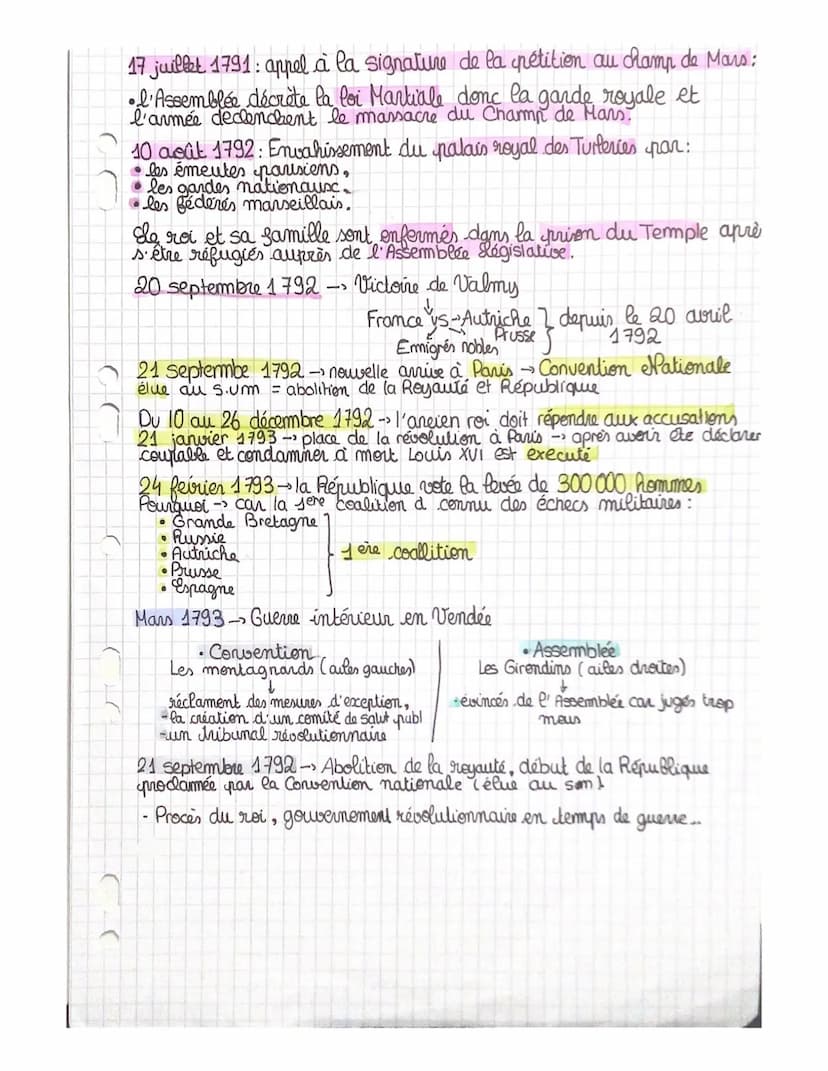 17 juillet 1791 : appel à la signature de la pétition au champ de Mars :
• l'Assemblée décrète la loi Martiale donc la garde royale et
l'armée declenchent le massacre du Champ de Mars.
10 août 1792 : Envahissement du palais royal des Tuileries par :
• les émeutes parisiens,
• les gardes nationaux.
• les fédérés marseillais.
Le roi et sa famille sont enfermés dans la prison du Temple aprè
s'être réfugiés auprès de l'Assemblée Législative.
20 septembre 1792 → Victoire de Valmy
↓
France vs → Autriche } depuis le 20 avril
Prusse 1792
Emigrés nobles
21 septembe 1792 → nouvelle arrive à Paris → Convention Nationale
élue au s.um = abolition de la Royauté et République
Du 10 au 26 décembre 1792 → l'ancien roi doit répendre aux accusations
21 janvier 1793 → place de la révolution à Paris → après avoir été déclarer
coupable et condamner à mort Louis XVI est executé
24 février 1793 → la République vote la levée de 300 000 hommes
Pourquoi → car la 1ère coalition a connu des échecs militaires :
• Grande Bretagne
• Russie
• Autriche } 1ère coallition
• Prusse
• Espagne
Mars 1793 → Guerre intérieur en Vendée
• Convention • Assemblée
Les montagnards (ailes gauches) Les Girondins (ailes droites)
↓ ↓
réclament des mesures d'exception, - évincés de l'Assemblée car jugés trop
- la création d'un comité de salut publ mous
- un tribunal révolutionnaire
21 septembre 1792 → Abolition de la royauté, début de la République
proclamée par la Convention nationale (élue au sm)
- Procès du roi, gouvernement révolutionnaire en temps de guerre...